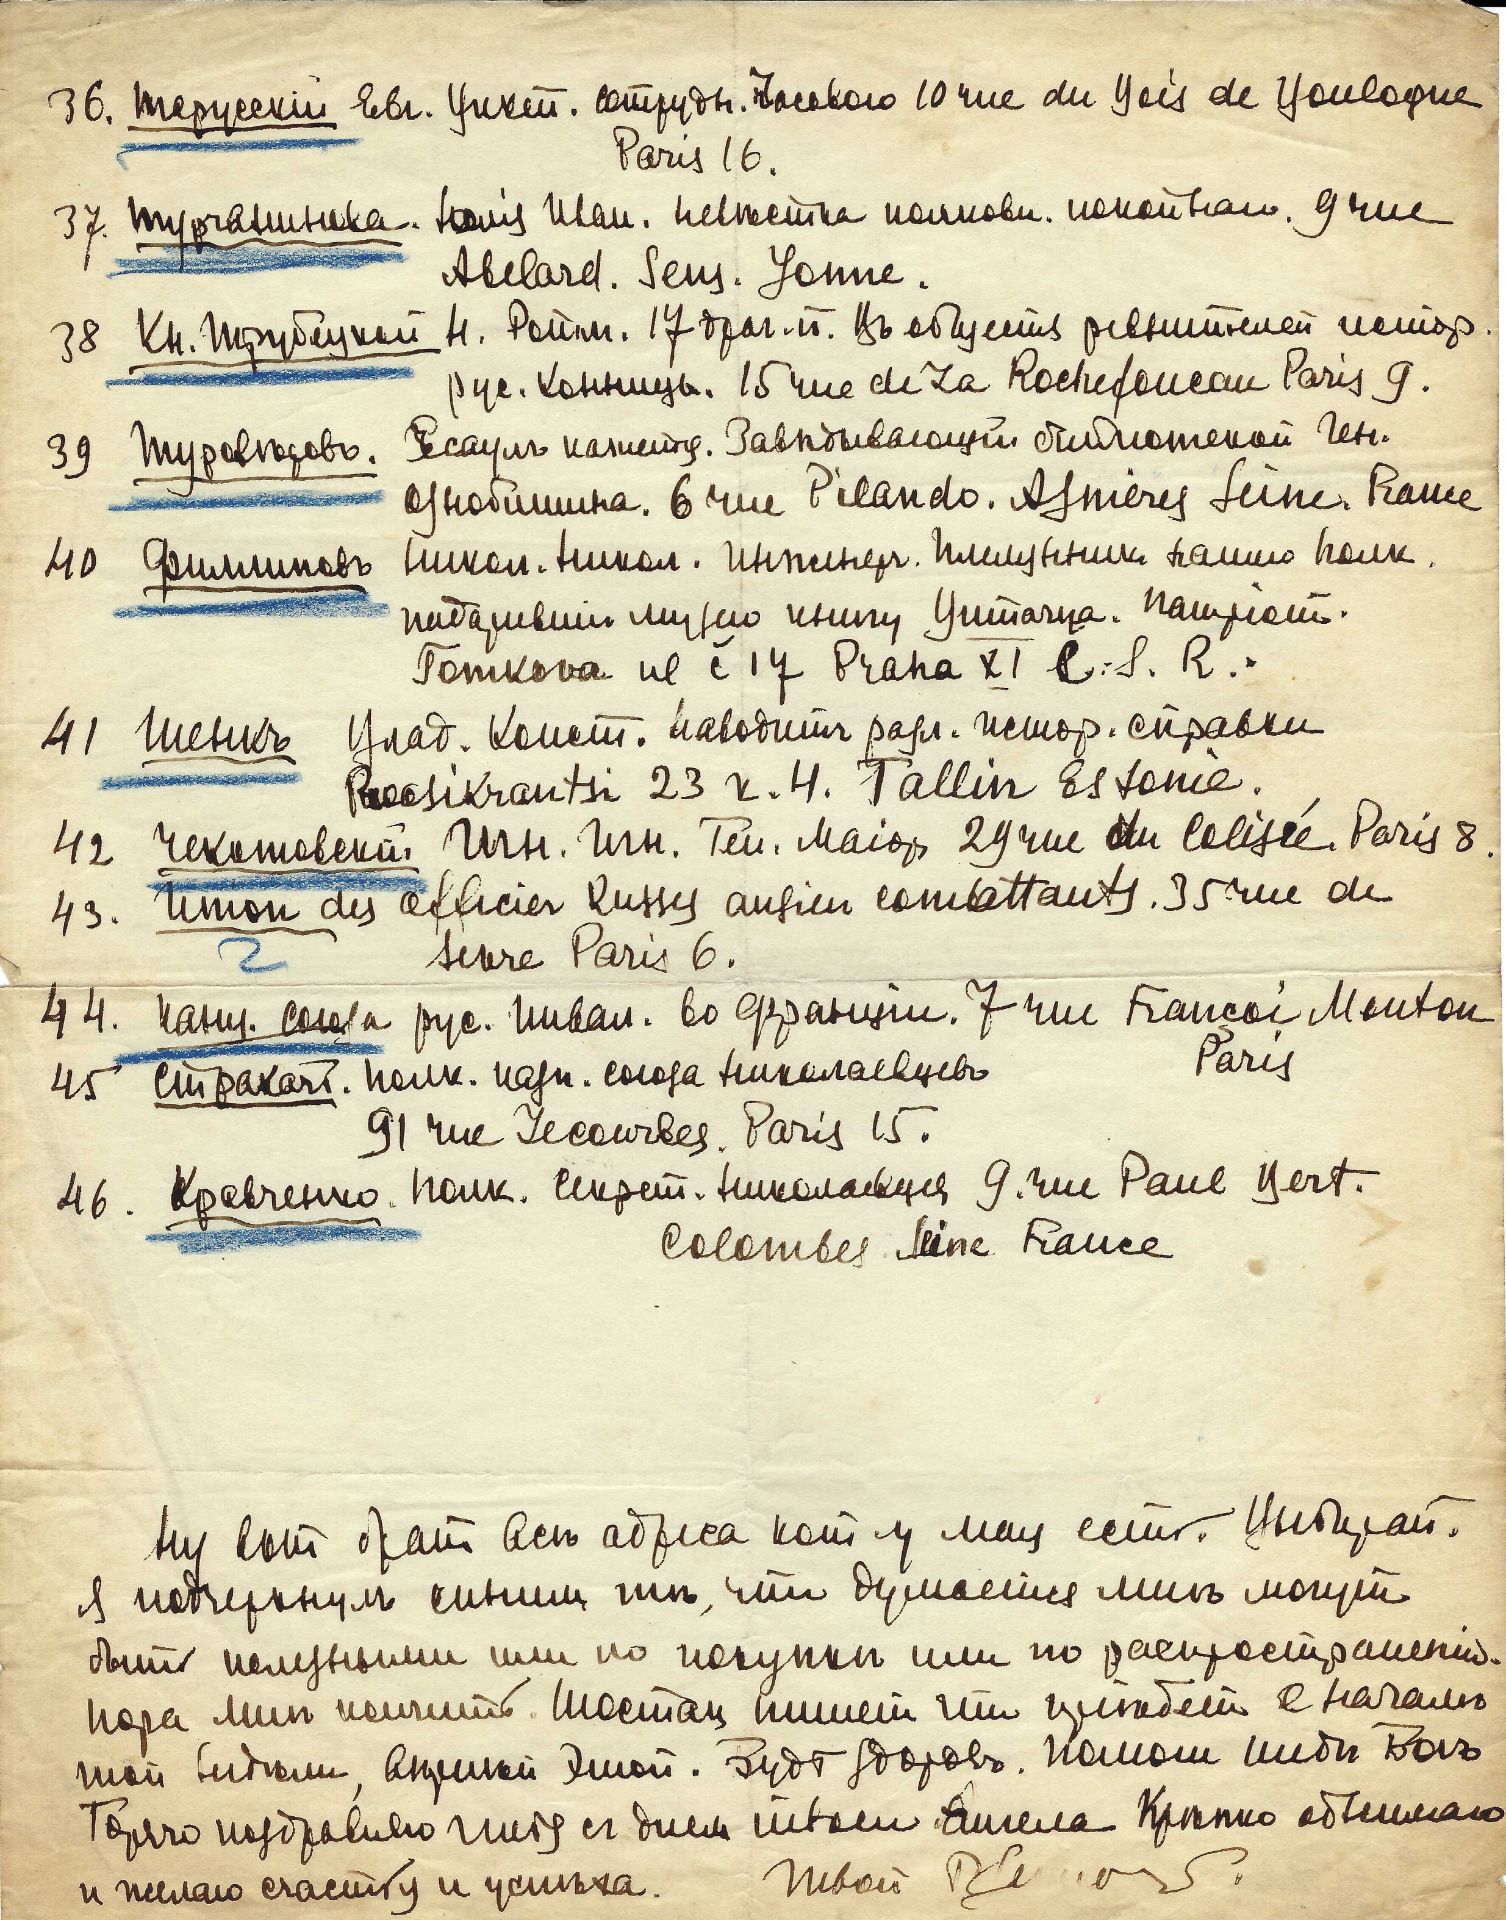 36. Тарусскій Евг. Викт. сотрудн. Часового 10 rue du Bois de Boulogne
Paris 16.
37. Турчанинова. Иван. невестка полковн. 9 rue
Abelard. Sens. Yonne.
38 Кн. Трубецкой Н. Ротм. 17 драг. п. Въ обществѣ ревнителей истор.
рус. конницы. 15 rue de La Rochefoucau Paris 9.
39 Туровѣровъ. Есаулъ кажется. Завѣдывающій библіотекой Ген.
Ознобишина. 6 rue Pilando. Asnières Seine. France
40 Филлиповъ Никол. Никол. Инженер. Племянник нашего полк.
подаривший музею книгу Витачка. Патріот.
Tomkova ul č 17 Praha XI Č. S. R.
41 Шенкъ Влад. Конст. Наводит разл. истор. справки
Roosikrantsi 23 k. 4. Tallin Estonie.
42 Чекотовскій Игн. Игн. Ген. Маіор 29 rue du Colisée Paris 8.
43. Union des officier Russes ancien combattants. 35 rue de
Paris 6.
44. Канц. Союза рус. Инвал. во Франціи. 7 rue Françoi Mouton
Paris
45 Страхат. Полк. казн. союза Николаевцевъ
91 rue Lecourbes. Paris 15.
46. Кравченко. Полк. Секрет. Николаевцев 9. rue Paul Bert.
Colombes Seine France
Ну вот брат всѣ адреса кот у меня есть. Выбирай.
Я подчеркнулъ синим тѣ, что думается мнѣ могут
быть полезными или по покупкѣ или по распространенію.
Пора мнѣ кончить. Шостак пишет что приѣдет в началѣ
той недѣли, Будь здоровъ. Помоги тебѣ Богъ
Горячо поздравляю тебя съ днем твоего Ангела Крѣпко обнимаю
и желаю счастья и успѣха. Твой